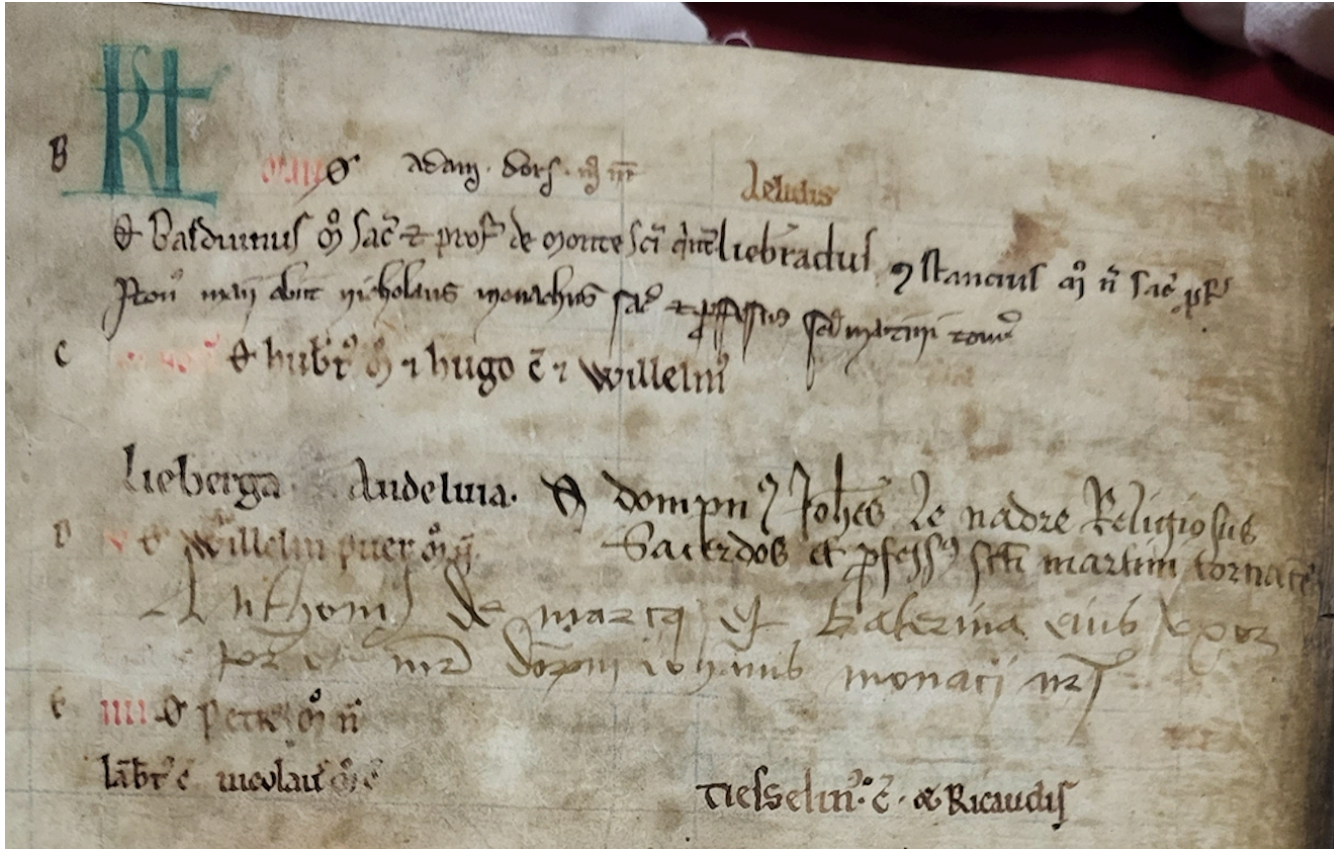 KL
B Ø Adam. dors. m̊ nr̄ deludis
Ø Balduinus m̊ sac̄ ⁊ prof⁹ de monte sc̄i liebradus ꝯstancius m̊ n̄ sac̄ pf̄
maij obiit nicholaus monachus sac̄ ⁊ ꝓfessus sc̄i martini torn̄
C Ø hub̄t⁹ m̊ ⁊ hugo c̄ ⁊ Willelm⁹
Lieberga. Audeluia. Ø dompn⁹ Joh̄es le nadre Religiosus
D v Ø Willelm puer m̊ n̄ Sacerdos et ꝓfess⁹ sc̄ti martini tornac̄
Anthoni⁹ de marcq et Katerina eius vxor
pat̄ et mr̄ dōpni iohannis monaci nr̄j
E iiii Ø petr⁹ m̊ n̄
lāb̄t⁹ c̄ nicolaus m̊ c̄ Tiesselin⁹. c̄. ⁊ Ricaudis